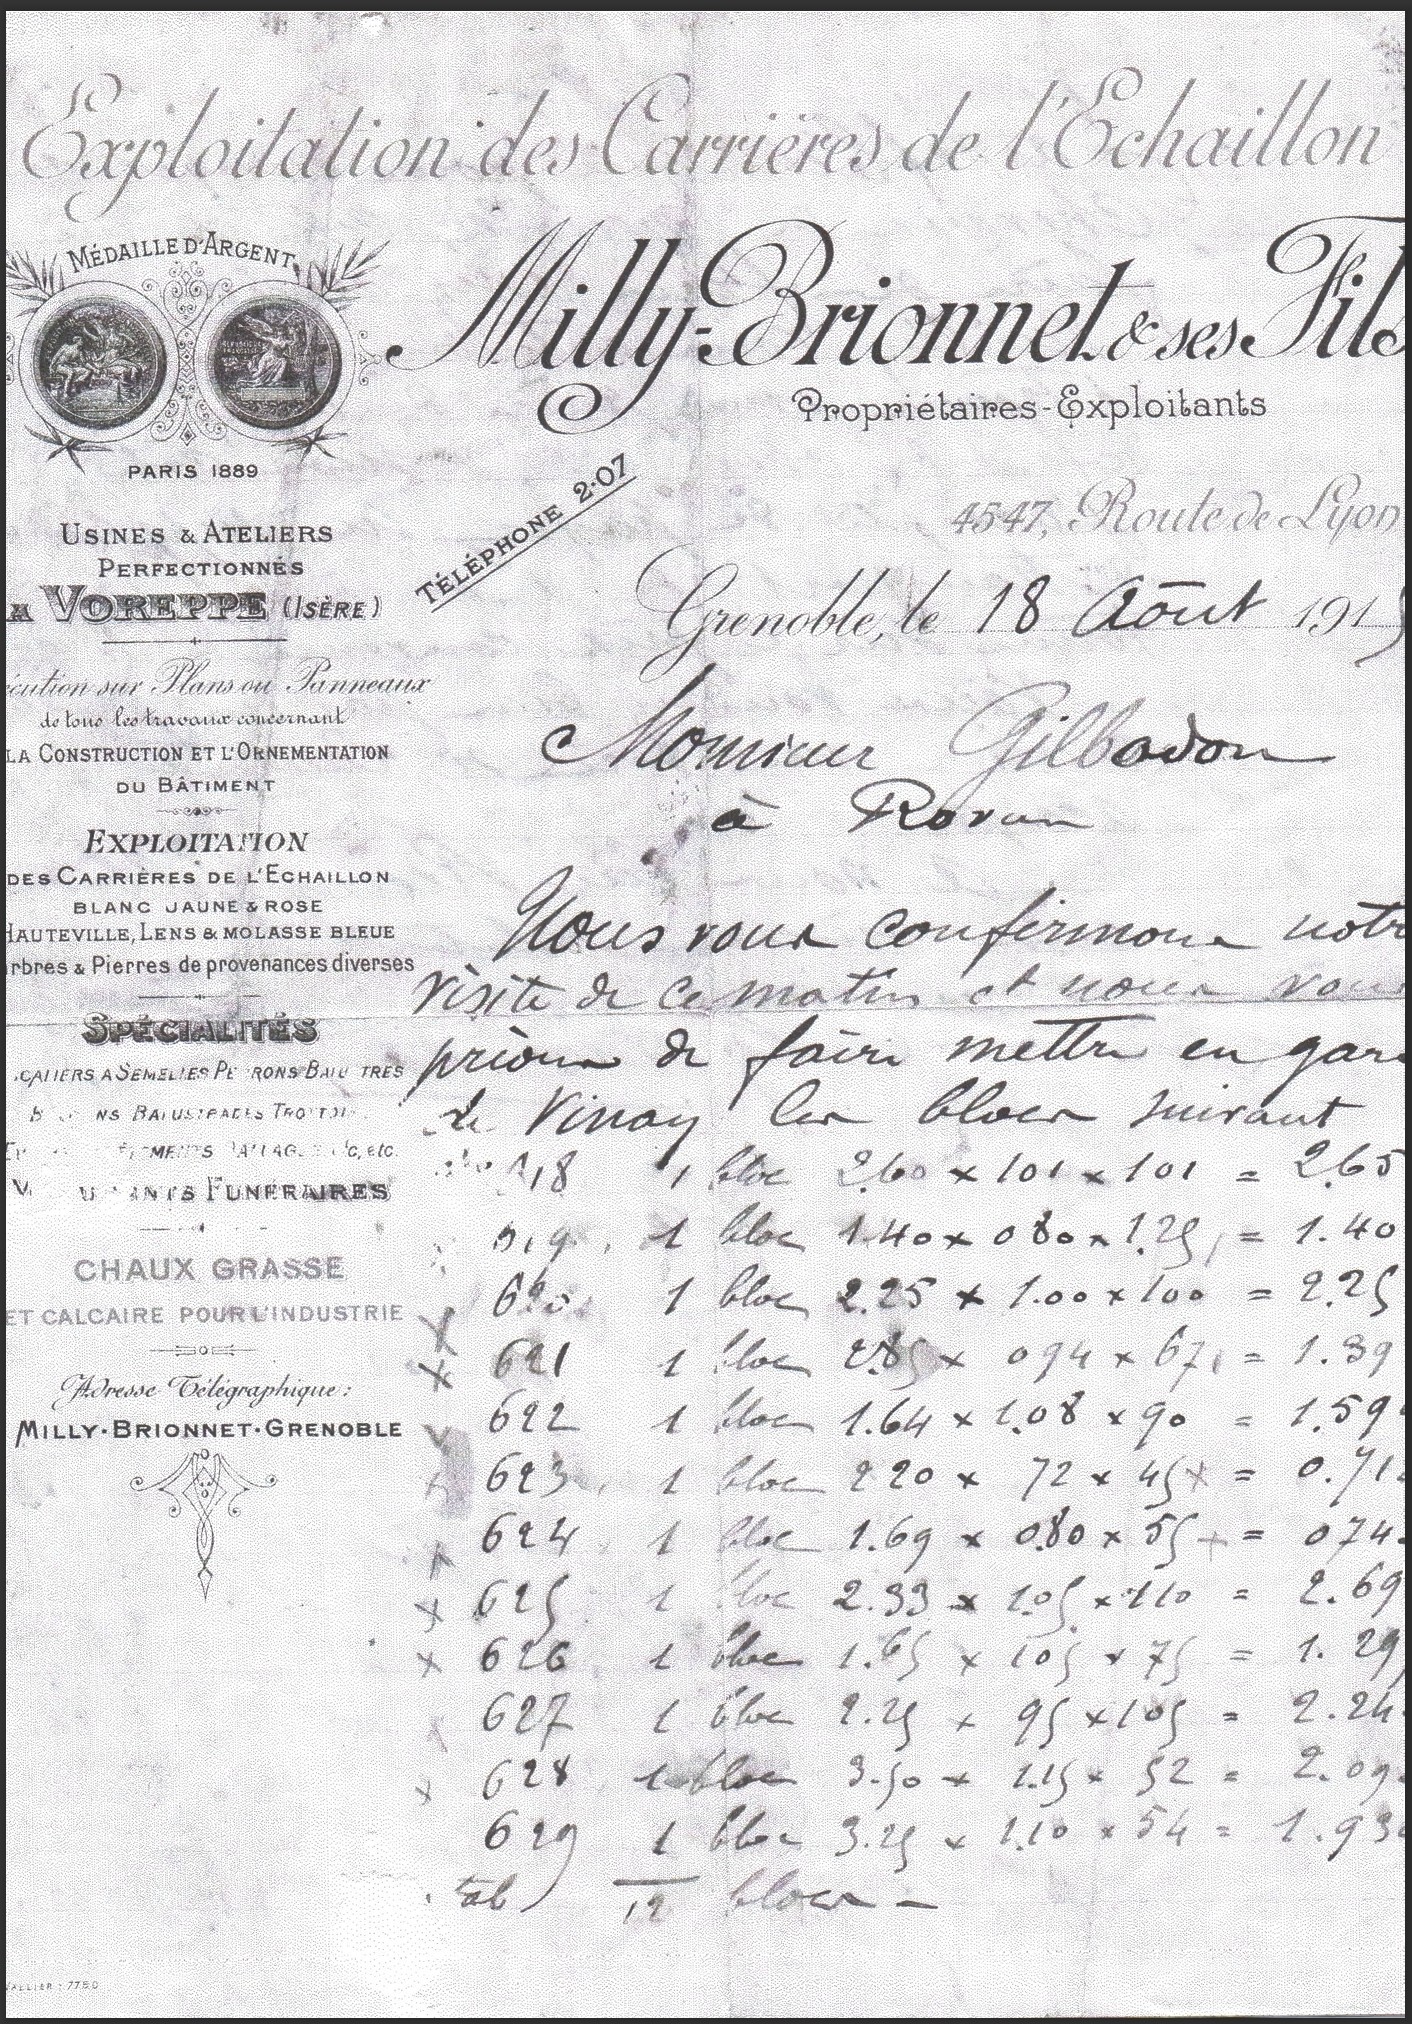 Exploitation des Carrières de l'Echaillon
MÉDAILLE D'ARGENT
PARIS 1889
Milly-Brionnet & ses Fils
Propriétaires-Exploitants
TÉLÉPHONE 2-07
4547, Route de Lyon
Grenoble, le 18 Août 191
USINES & ATELIERS
PERFECTIONNÉS
A VOREPPE (ISÈRE)
écution sur Plans ou Panneaux
de tous les travaux concernant
LA CONSTRUCTION ET L'ORNEMENTATION
DU BÂTIMENT
EXPLOITATION
DES CARRIÈRES DE L'ECHAILLON
BLANC JAUNE & ROSE
HAUTEVILLE, LENS & MOLASSE BLEUE
rbres & Pierres de provenances diverses
SPÉCIALITÉS
CALIERS A SEMELLES
etc.
FUNÉRAIRES
CHAUX GRASSE
ET CALCAIRE POUR L'INDUSTRIE
Adresse Télégraphique:
MILLY-BRIONNET-GRENOBLE
Monsieur Gilbadon
à Rovon
Nous vous confirmons notre
visite de ce matin et nous vous
prions de faire mettre en gare
de Vinay les blocs suivant
18 1 bloc 2.60 x 101 x 101 = 2.65
1 bloc 1.40 x 080 x 1.25 = 1.40
620 1 bloc 2.25 x 1.00 x 100 = 2.25
x 621 1 bloc x 094 x 67 = 1.39
622 1 bloc 1.64 x 1.08 x 90 = 1.59
623 1 bloc 220 x 72 x 45 = 0.71
624 1 bloc 1.69 x 0.80 x 55 = 074
x 625 1 bloc 2.33 x 1.05 x 110 = 2.69
x 626 1 bloc 1.65 x 105 x 75 = 1.29
627 1 bloc 2.25 x 95 x 105 = 2.24
x 628 1 bloc 3.50 x 1.15 x 52 = 2.09
629 1 bloc 3.25 x 1.10 x 54 = 1.93
12 blocs -